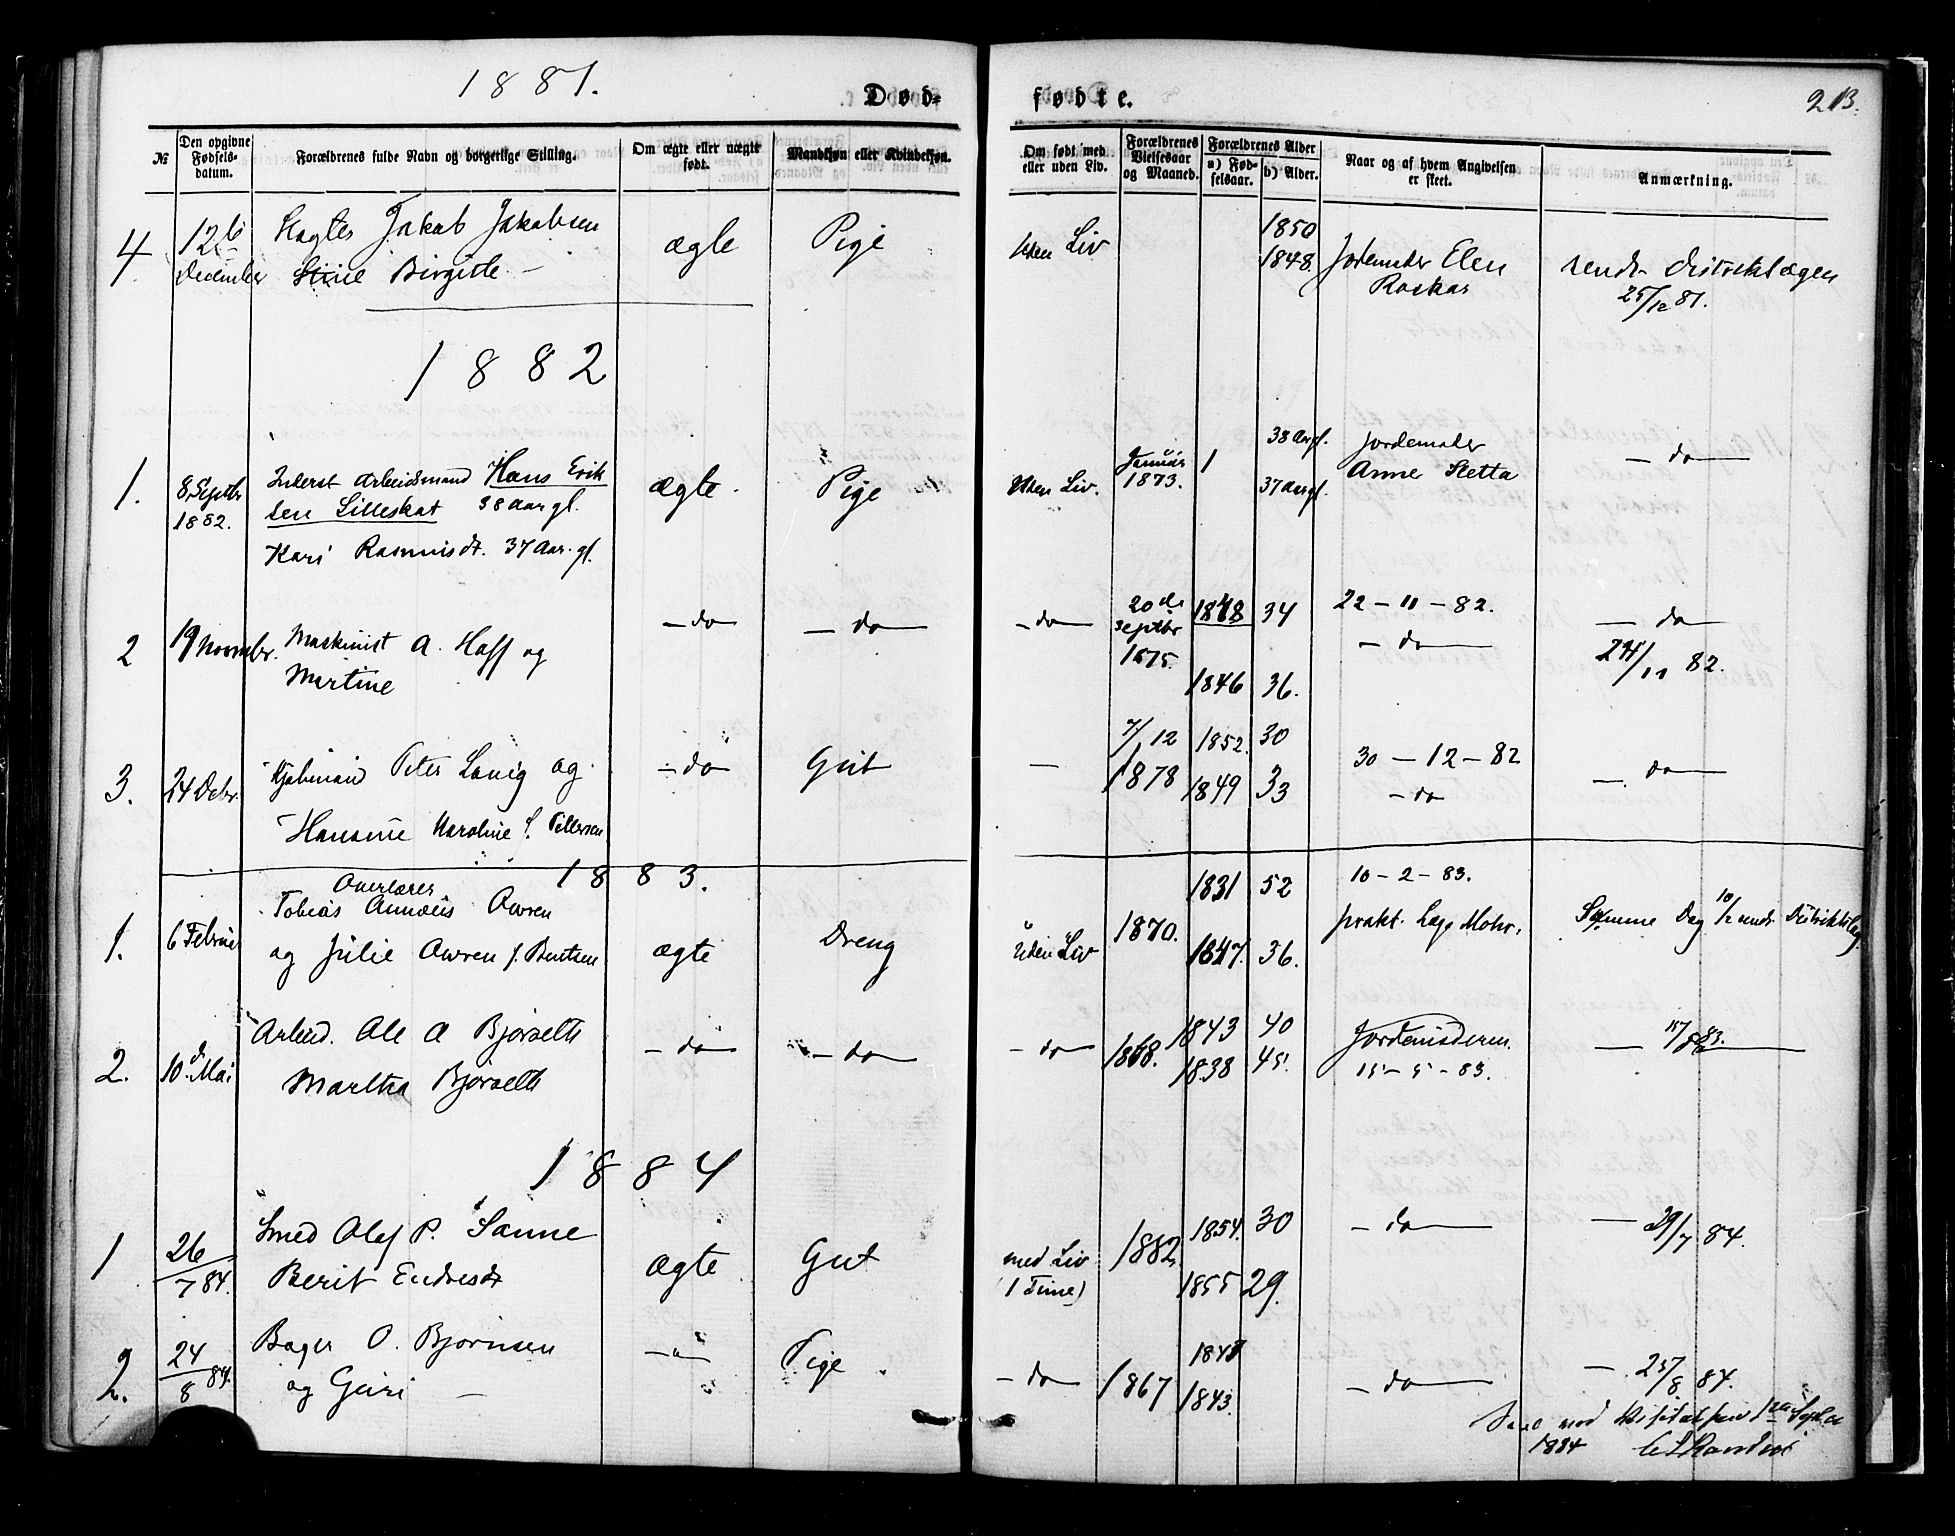 1881.
Død-
fødte.
213.
№
Den opgivne Fødsels-datum.
Forældrenes fulde Navn og borgerlige Stilling.
Om ægte eller uægte født.
Mandkjøn eller Kvindekjøn.
Om født med eller uden Liv.
Forældrenes Vielsesaar og Maaned.
Forældrenes Alder
a) Fød-selsaar.
b) Alder.
Naar og af hvem Angivelsen er skeet.
Anmærkning.
4 12 December Jakob Jakobsen ægte Pige Uden Liv 1850
Birgitte 1848. Jordemoder Elen sendt Distriktslægen
Roskar 25/12 81.
1882
1. 8 Septbr 1882. Inderst Arbeidsmand Hans Erik ægte. Pige Uden Liv. Januar 1873. 38 Aar gl. Jordemoder — do —
sen Lilleskat 38 Aar gl. 37 Aar gl. Anne Sletta
Kari Rasmusdt. 37 Aar. gl.
2 19 November. Maskinist A. Hoff og — do — — do — — do — 20de Septbr 1875. 1848 34 22 – 11 – 82. — do —
Martine 1846 36. — do — 24/11 82.
3. 24 Debr. Peter og — do — Gut — 7/12 1878 1852. 30 30 – 12 – 82 — do —
Hansine Karoline f. Pettersen 1849 33 — do
1883.
1. 6 Februar Overlærer
Tobias Aarren ægte Dreng Uden Liv 1870. 1831 52 10 – 2 – 83. Samme Dag 10/2 sendt Distriktslæg
og Julie Aarren f. Bentsen 1847. 36. prakt. Læge Mohr.
2. 10de Mai Arbeid. Ole A Bjørseth — do — — do — — do 1868. 1843 40 Jordemoderen — 15/5 83.
Martha Bjørseth 1838 45 15 – 5 – 83.
1884
1 26/7 84. Smed Olaf P. Sanne ægte Gut med Liv (1 Time) 1882. 1854. 30 — do — — 29/7 84.
Berit Endresdt 1855 29.
2. 24/8 84. Bager O. Bjørnsen — " — Pige — do — 1867 1843. — do — — 25/8 84.
og Guri —
ved Visitatsen 1ste Septbr
1884